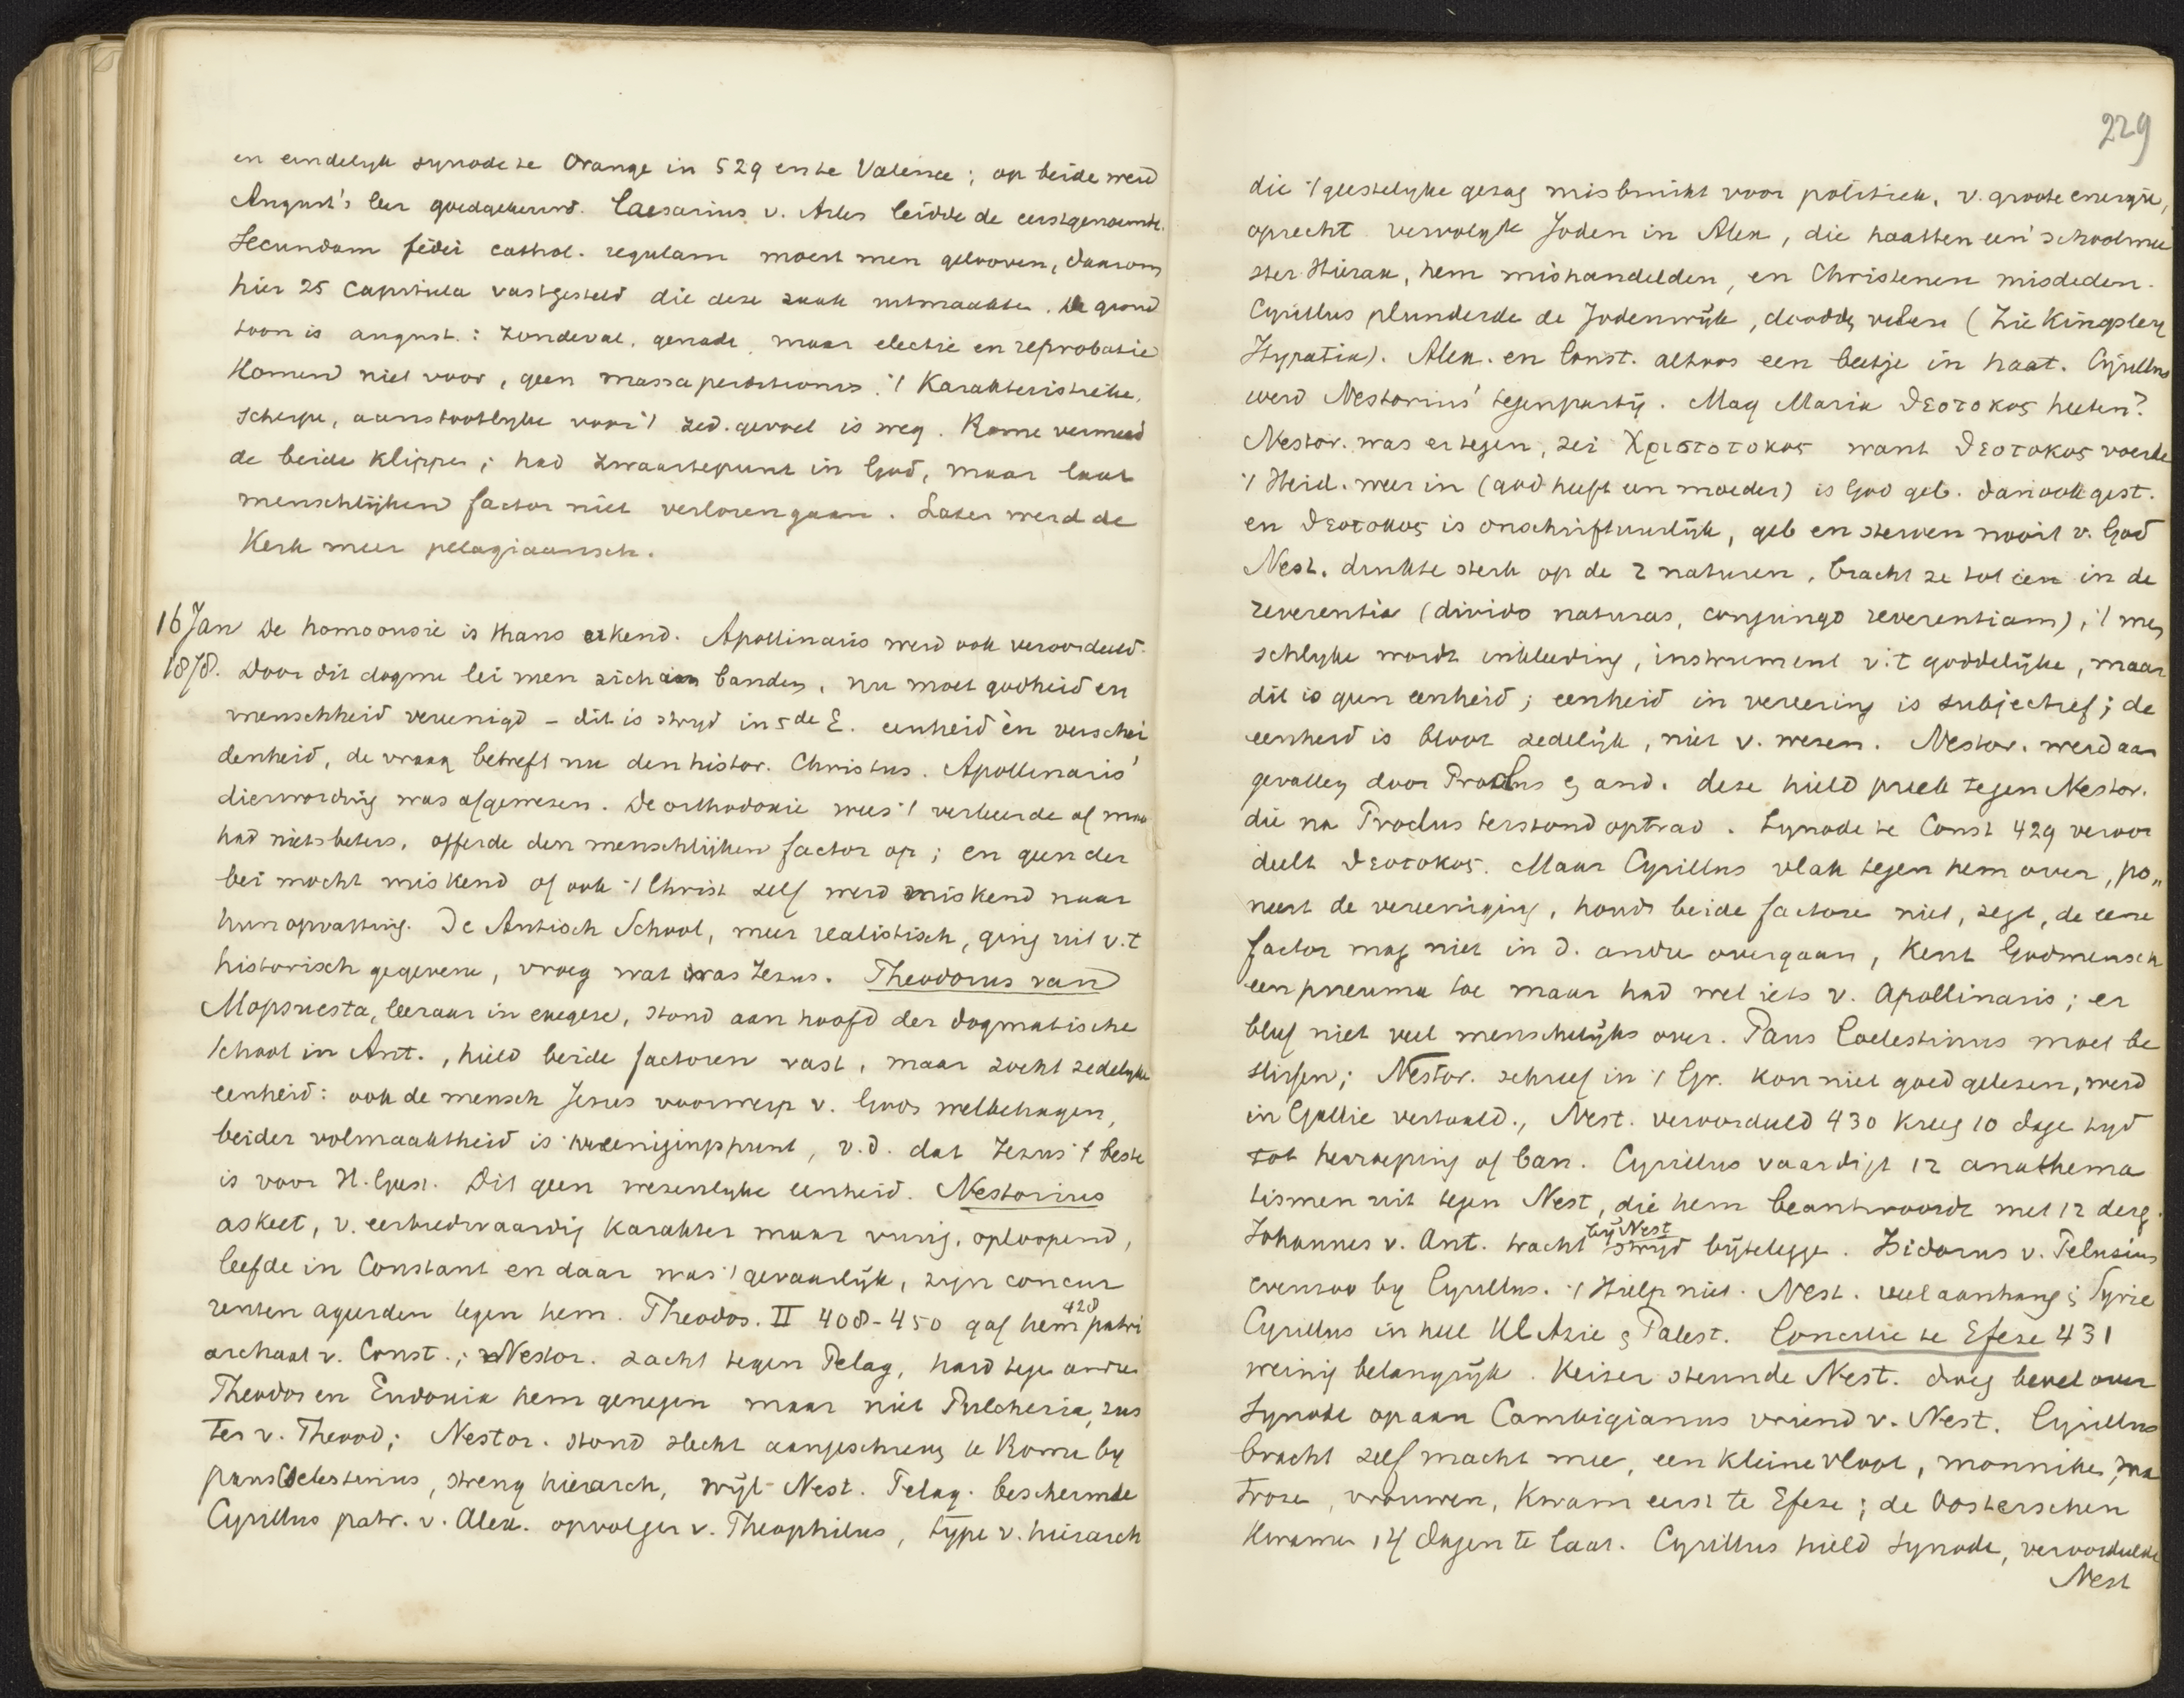 en eindelyk synode te Orange in 529 en te Valence; op beide werd
August's leer goedgekeurd. Caesarius v. Arles leidde de eerstgenoemde.
Secundam fidei cathol. regulam moest men gelooven, daarom
hier 25 Capitula vastgesteld die deze zaak uitmaakte. De grond
toon is august.: Zondeval, genade, maar electie en reprobatie
Komen niet voor, geen massa perditionis. 't Karakteristieke,
scherpe, aanstootelyke voor 't zed. gevoel is weg. Rome vermeed
de beide klippen; had zwaartepunt in God, maar laat
menschlijken factor niet verloren gaan. Later werd de
Kerk meer pelagiaansch.
16 Jan De homoousie is thans erkend. Apollinaris werd ook veroordeeld.
1878. Door dit dogma lei men zich aan banden, nu moet godheid en
menschheid vereenigd – dit is stryd in 5de E. eenheid èn verschei
denheid, de vraag betreft nu den histor. Christus. Apollinaris'
dienwording was afgewezen. De orthodoxie wees 't verkeerde af maar
had niets beters, offerde den menschlijken factor op; en geen der
bei mocht miskend of ook 't Christ zelf werd miskend naar
hun opvatting. De Antioch School, meer realistisch, ging uit v. 't
historisch gegevene, vroeg wat was Jezus. Theodorus van
Mopsuesta, leeraar in exegese, stond aan hoofd der dogmatische
school in Ant., hield beide factoren vast, maar zocht zedelyke
eenheid: ook de mensch Jezus voorwerp v. Gods welbehagen,
beider volmaaktheid is vereenigingspunt, v.d. dat Jezus 't beste
is voor H. Geest. Dit geen wezenlyke eenheid. Nestorius
askeet, v. eerbiedwaardig karakter maar vurig, oploopend,
leefde in Constant en daar was 't gevaarlijk, zijn concur
renten ageerden tegen hem. Theodos. II 408-450 gaf hem 428 patri
archaat v. Const.; Nestor. zacht tegen Pelag, hard tege andre
Theodos en Eudoxia hem genegen maar niet Pulcheria, zus
ter v. Theod; Nestor. stond slecht aangeschreve te Rome by
paus Coelestinus, streng hierarch, wijl Nest. Pelag. beschermde
Cyrillus patr. v. Alex. opvolger v. Theophilus, type v. hierarch
229
die 't geestelyke gezag misbruikt voor politiek, v. groote energie,
oprecht vervolgde Joden in Alex, die haatten een schoolmee
ster Hierax, hem mishandelden, en Christenen misdeden.
Cyrillus plunderde de Jodenwijk, doodde velen (Zie Kingsley
Hypatia). Alex. en Const. altoos een beetje in haat. Cyrillus
werd Nestorius' tegenpartij. Mag Maria ϑεοτοκος heeten?
Nestor. was ertegen, zei Χριστοτοκος want ϑεοτοκος voerde
't Heid. weer in (god heeft een moeder) is God geb. dan ook gest.
en ϑεοτοκος is onschriftuurlijk, geb en sterven nooit v. God
Nest. drukte sterk op de 2 naturen, bracht ze tot één in de
reverentia (divido naturas, conjungo reverentiam), 't men
schlyke wordt inkleeding, instrument v. 't goddelijke, maar
dit is geen eenheid; eenheid in vereering is subjectief; de
eenheid is bloot zedelijk, niet v. wezen. Nestor. werd aan
gevallen door Proclus & and. deze hield preek tegen Nestor.
die na Proclus terstond optrad. Synode te Const 429 veroor
deelt ϑεοτοκος. Maar Cyrillus vlak tegen hem over, po„
neert de vereeniging, houdt beide factore niet, zegt, de eene
factor mag niet in d. andre overgaan, Kent Godmensch
een pneuma toe maar had wel iets v. Apollinaris; er
bleef niet veel menschelijks over. Paus Coelestinus moet be
slissen; Nestor. schreef in 't Gr. kon niet goed gelezen, werd
in Gallie vertaald., Nest. veroordeeld 430 kreeg 10 dage tyd
tot herroeping of ban. Cyrillus vaardigt 12 anathema
tismen uit tegen Nest, die hem beantwoordt met 12 derg.
Johannes v. Ant. tracht by Nest stryd bijtelegge. Isidorus v. Pelusium
evenzoo by Cyrillus. 't Hielp niet. Nest. veel aanhang i Syrie
Cyrillus in heel Kl Azie & Palest. Concilie te Efeze 431
weinig belangrijk. Keizer steunde Nest. droeg bevel over
Synode op aan Candidianus vriend v. Nest. Cyrillus
bracht zelf macht mee, een kleine vloot, monniken, ma
troze, vrouwen, kwam eerst te Efeze; de Oosterschen
kwamen 14 dagen te laat. Cyrillus hield synode, veroordeelde
Nest